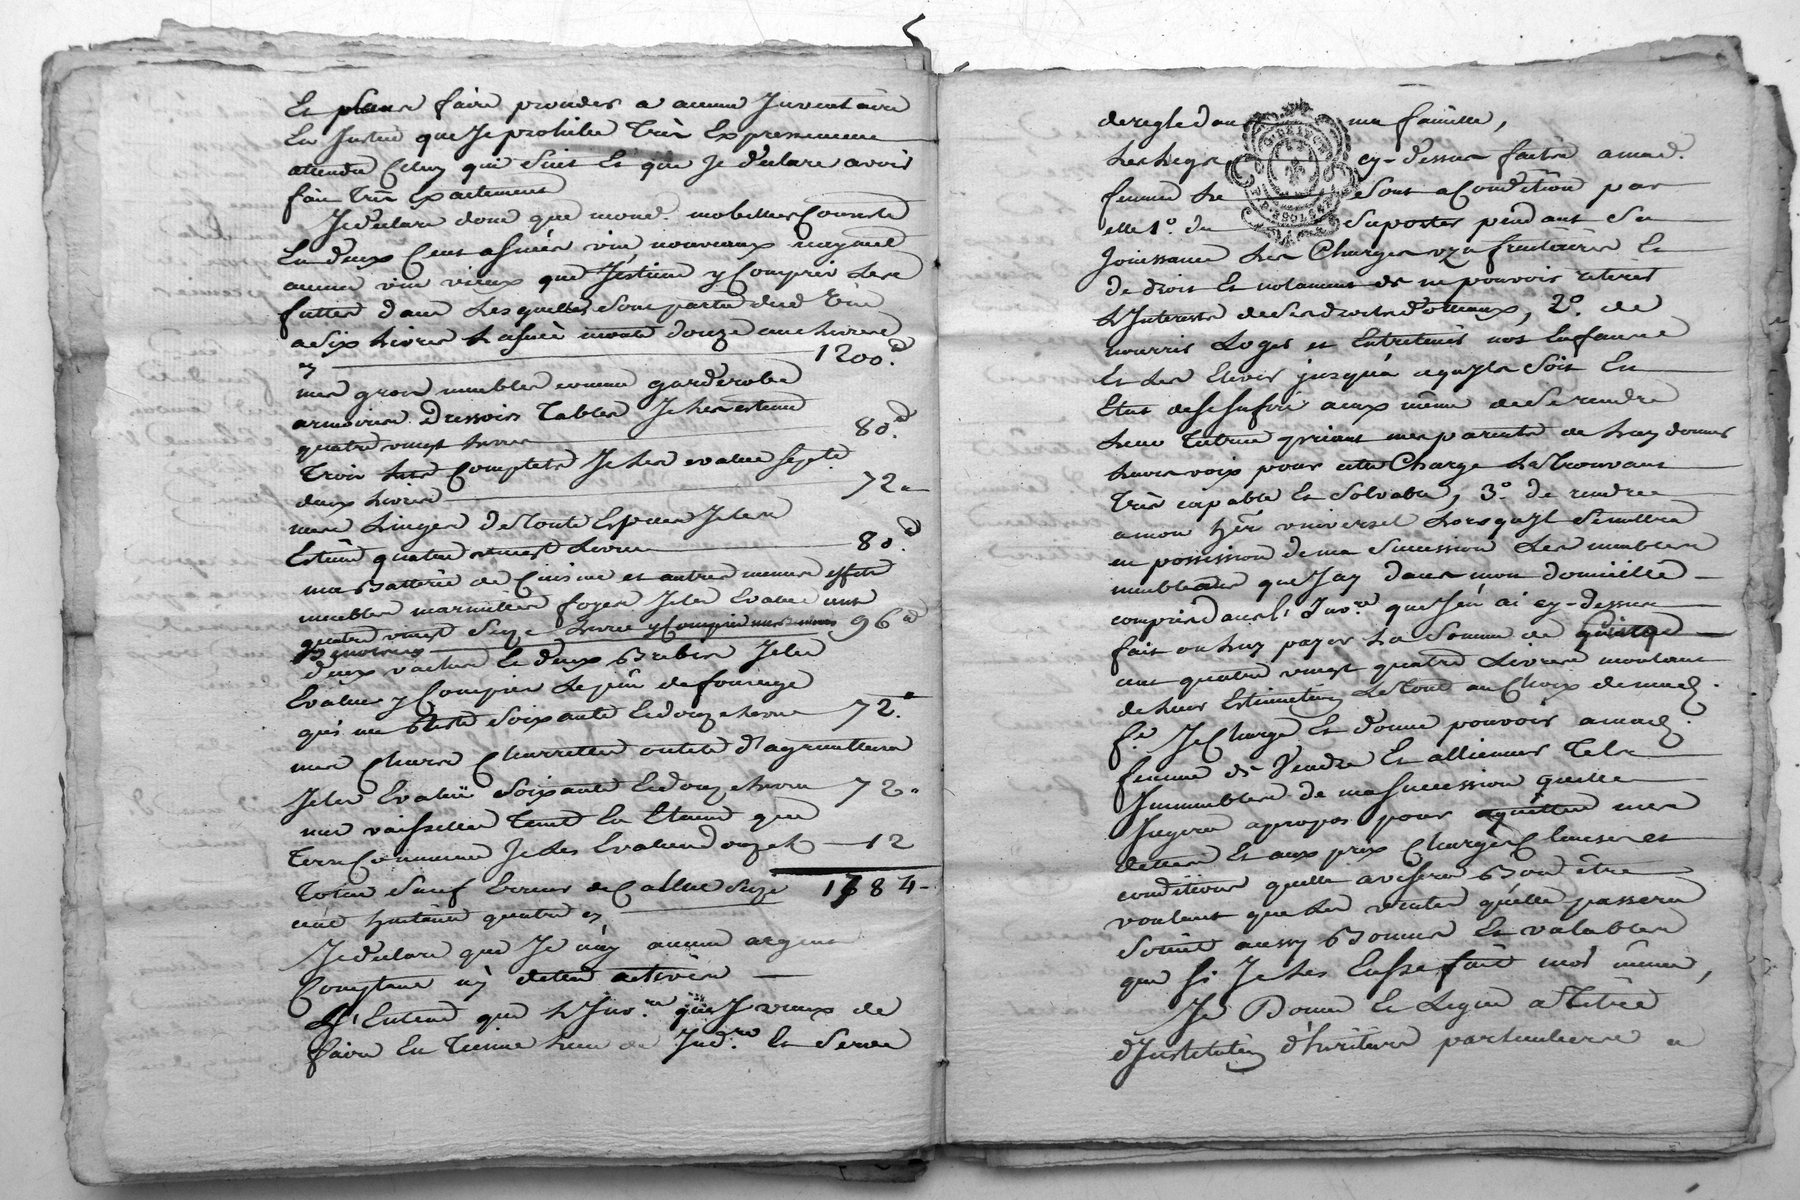 Et sans faire proceder a aucun Inventaire
En Justice que Je prohibe très Expressement
attendu Celuy qui suit Et que Je declare avoir
fait très Exactement
Je declare donc que mond. mobillier Consiste
En deux Cent asnées vin nouveaux n'ayant
aucun vin vieux que J'estime y Compris les
futtes dans lesquelles sont partie dud vin
a six livres l'asnée monte douze cent livres
cy 1200.
mes gros meubles comme garderobe
armoires Dressoirs Tables Je les estime
quatre vingt livres 80.
Trois lits Complets Je les evalue septe
deux livres 72
mes Linges de toute Espece Je les
Estime quatre vingt livres 80.
ma Batterie de Cuisine et autres menus effets
meubles marmittes foyer Je les Evalue
quatre vingt seize livres y Compris 96
deux vaches Et deux Brebis Je les
Evalue y Compris le foin de fourage
qui me reste soixante Et douze livres 72.
mes Chars Charrettes outils d'agriculture
Je les Evalue soixante Et douze livres 72.
mes vaisselles Tant En Etain que
Terre Commune Je les Evalue douze # 12
Total sauf Erreur de Calcul seize 1684
cent huitante quatre cy
Je declare que Je n'ay aucun argent
Comptant ny dettes actives
J'Entend que L'Inv.re que Je viens de
faire En Tienne lieu de Jud.re Et serve
de regle dans ma famille,
Les legs cy-dessus faits a mad.
femme Le sont a Condition par
elle 1°. de suporter pendant sa
Jouissance les Charges uzufruitaires Et
de droit Et notament de ne pouvoir retirer
L'Interets de ses droits dotteaux, 2°. de
nourrir Loger et Entretenir nos Enfants
Et les Elever jusqu'a ce qu'yls soit En
Etat de se sufire a eux même de se rendre
leur Tutrice priant mes parents de luy donner
leurs voix pour cette Charge la trouvant
Très capable Et solvable, 3°. de rendre
a mon her universel Lors qu'yl se mettra
en possession de ma succession les meubles
meublants que J'ay dans mon domicille
compris dans l'Inv.re que J'en ai cy-dessus
fait ou luy payer la somme de
cent quatre vingt quatre Livres montant
de leur Estimation Le tout au Choix de mad.
f.e Je Charge Et donne pouvoir a mad.
femme de Vendre Et allienner Tels
Immeubles de ma succession qu'elle
Jugera apropos pour aquitter mes
dettes Et aux prix Charges Clauses et
conditions qu'elle avisera Bon être
voulant que les ventes qu'elle passera
soient aussy Bonnes Et valables
que si Je les Eusse fait moi même,
Je Donne Et Legue a Titre
d'Institution d'heritiere particuliere a